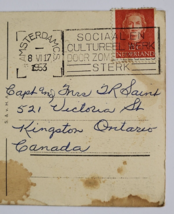 AMSTERDAM C.S.
8 VI 17
1953
SOCIAAL EN
CULTUREEL WERK
DOOR ZOMERZEGELS
STERK
NEDERLAND
Capt & Mrs T R Saint
521 Victoria St
Kingston Ontario
Canada